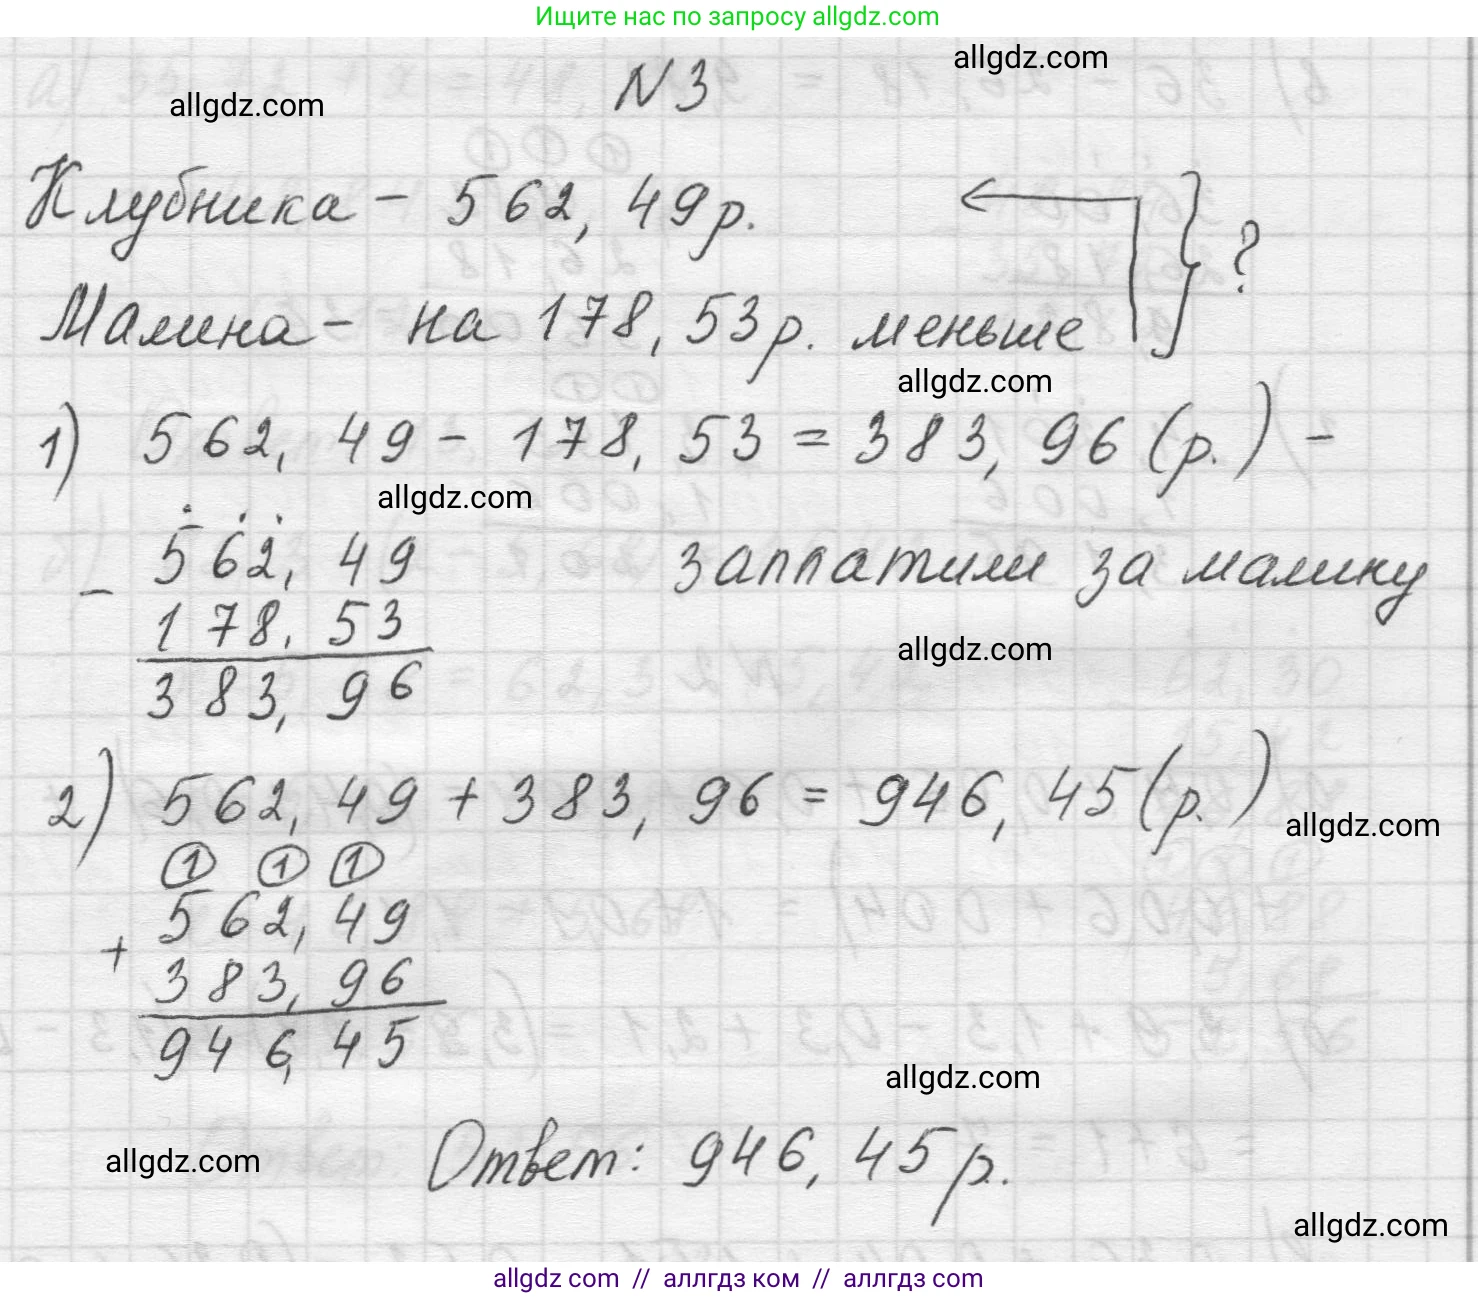 Ищите нас по запросу allgdz.com
allgdz.com
N 3
allgdz.com
Клубника - 562,49 р.
?
Малина - на 178,53 р. меньше
allgdz.com
1) 562,49 - 178,53 = 383,96 (р.) -
allgdz.com
заплатили за малину
- 562,49
178,53
383,96
allgdz.com
2) 562,49 + 383,96 = 946,45 (р.)
allgdz.com
1 1 1
+ 562,49
383,96
946,45
allgdz.com
Ответ: 946,45 р.
allgdz.com
allgdz.com
allgdz com // аллгдз ком // аллгдз com